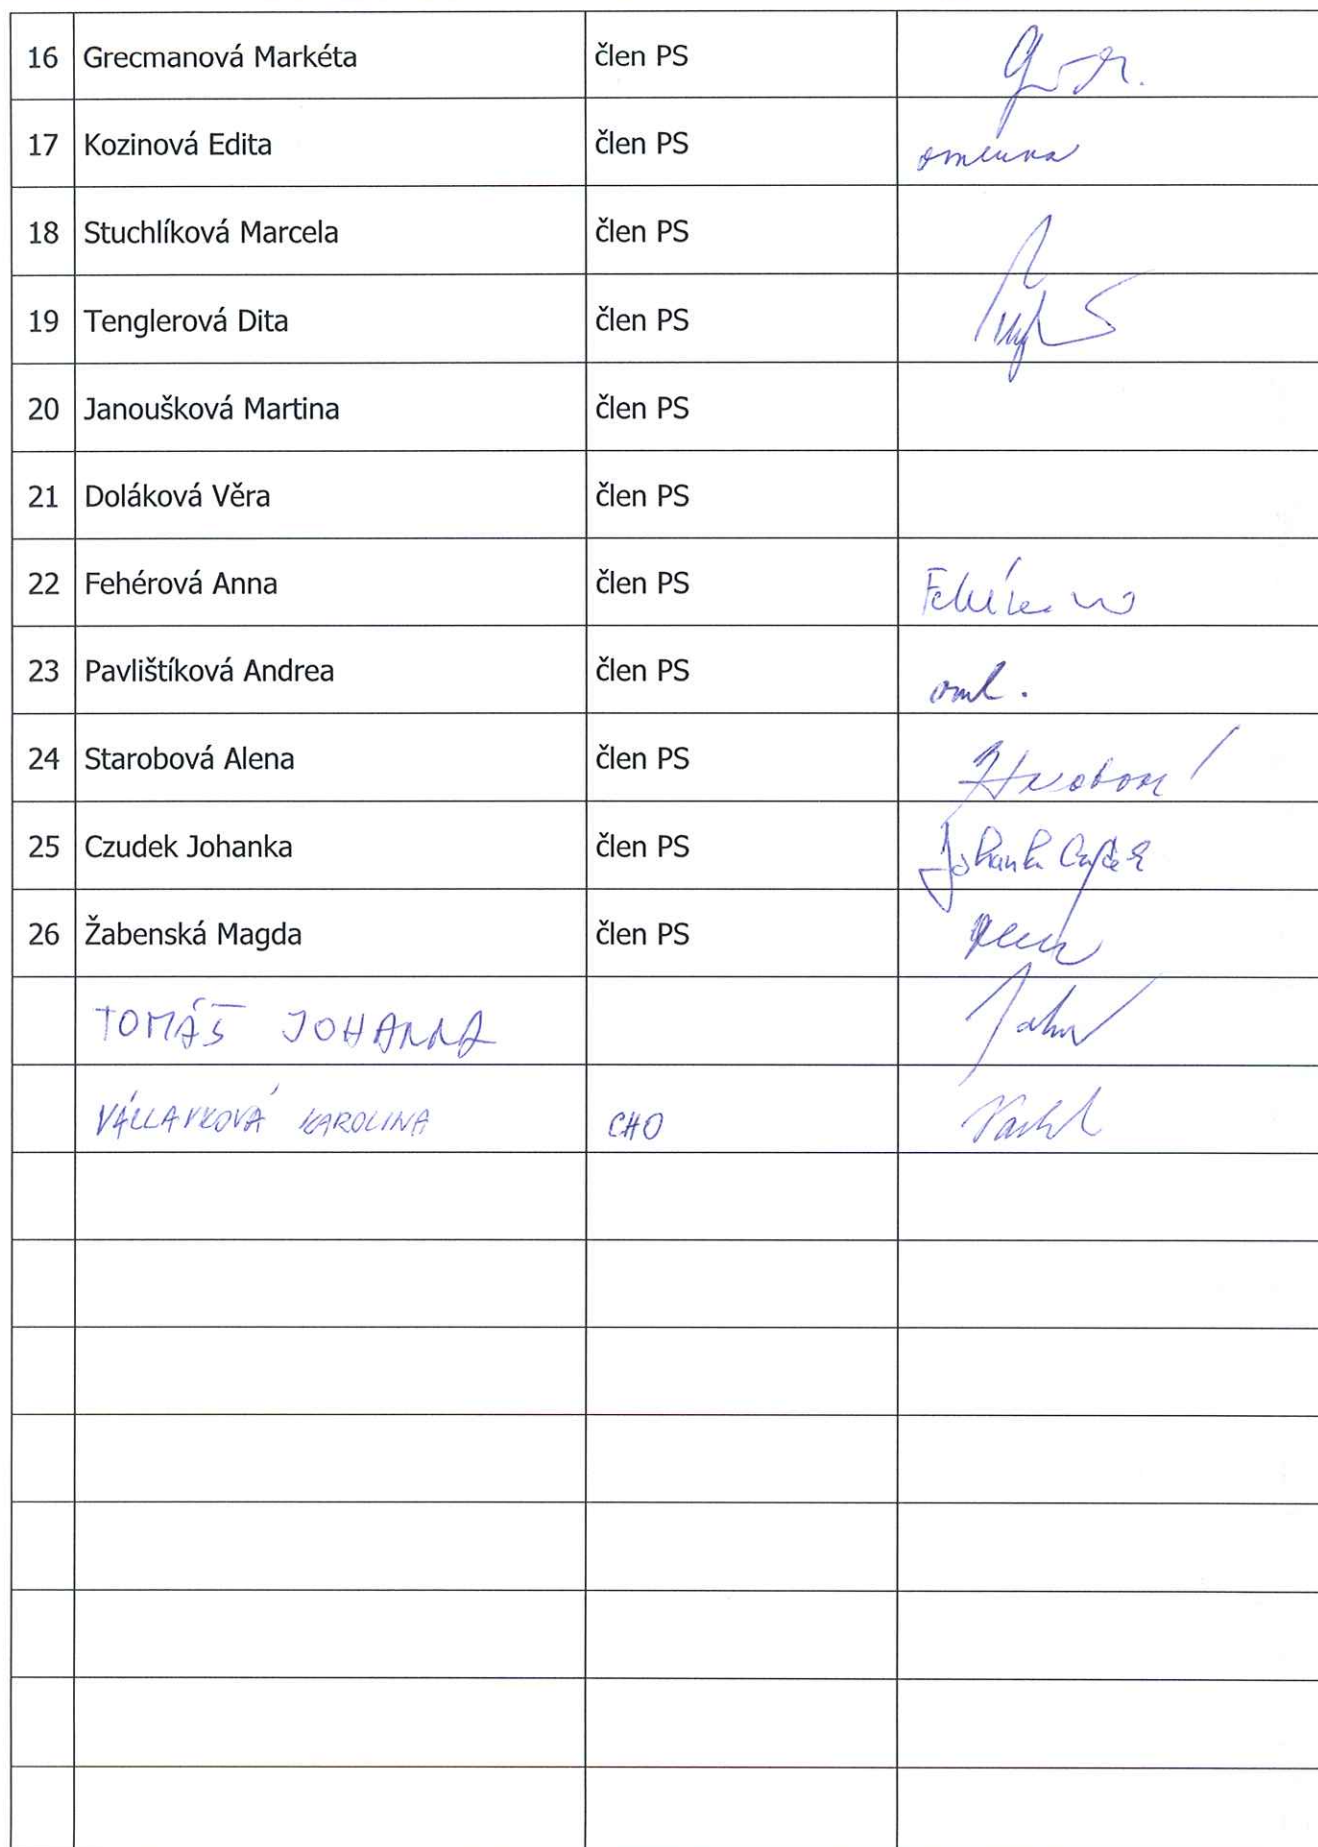 16 Grecmanová Markéta člen PS
17 Kozinová Edita člen PS omluvna
18 Stuchlíková Marcela člen PS
19 Tenglerová Dita člen PS
20 Janoušková Martina člen PS
21 Doláková Věra člen PS
22 Fehérová Anna člen PS
23 Pavlištíková Andrea člen PS oml.
24 Starobová Alena člen PS
25 Czudek Johanka člen PS Johanka Czudek
26 Žabenská Magda člen PS
TOMÁŠ JOHANNA
KAROLINA CHO